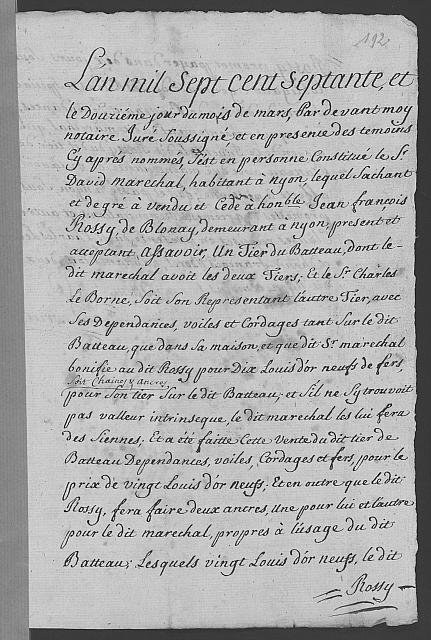 192.
L'an mil Sept cent Septante, et
le Douzième jour du mois de mars, Par devant moy
notaire Juré Soussigné et en presence des temoins
Cy après nommés, S'est en personne Constitué le Sr.
David marechal, habitant à nyon, lequel Sachant
et de gré à vendu et Cédé à honble. Jean françois
Rossy, de Blonay, demeurant à nyon, present et
acceptant, assavoir, Un Tier du Batteau, dont le-
dit marechal avoit les deux Tiers; Et le Sr. Charles
Le Borne, Soit Son Representant l'autre Tier, avec
Ses Dependances, voiles et Cordages tant Sur le dit
Batteau, que dans Sa maison, et que dit Sr. marechal
bonifie au dit Rossy pour Dix Louis d'or neufs de fers,
soit Chaines & ancres,
pour Son tier Sur le dit Batteau; et S'il ne S'y trouvoit
pas valleur intrinseque, le dit marechal les lui fera
des Siennes; Et a été faitte Cette Vente du dit tier de
Batteau Dependances, voiles, Cordages et fers, pour le
prix de vingt Louis d'or neufs; Et en outre que le dit
Rossy, fera faire deux ancres, Une pour lui et l'autre
pour le dit marechal, propres à l'usage du dit
Batteau; Lesquels vingt Louis d'or neufs, le dit
Rossy